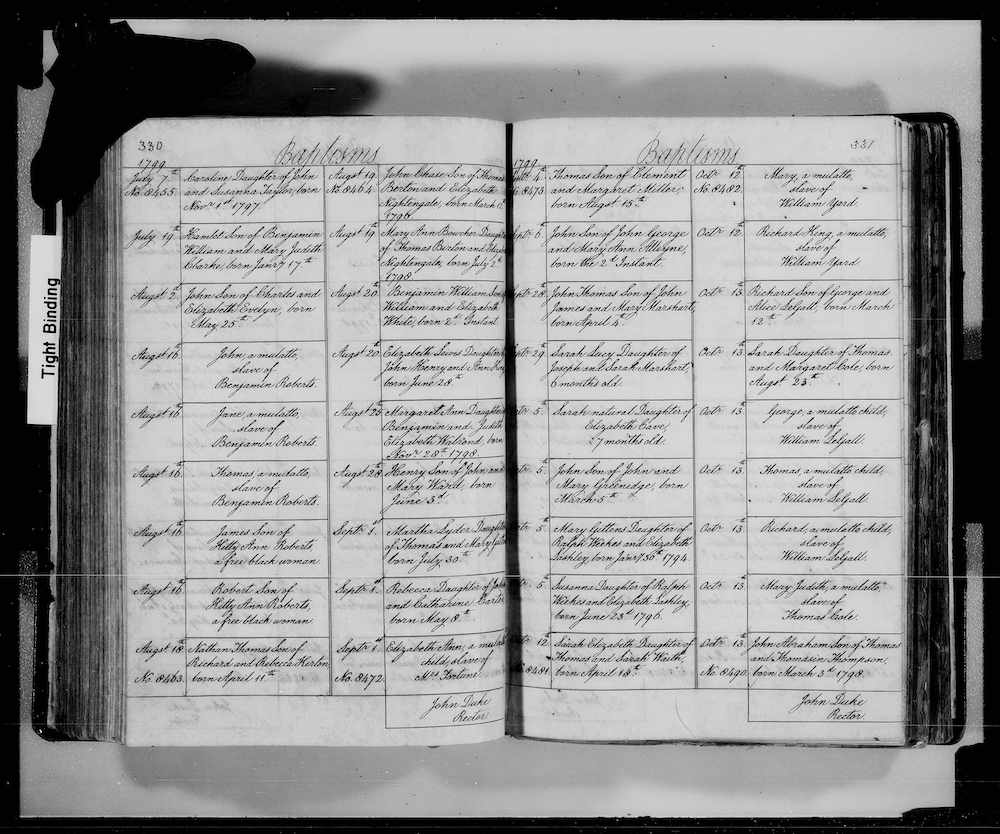 Tight Binding
330
Baptisms
1799
July 7th
No. 8455.
Caroline Daughter of John
and Susanna Taylor, born
Novr 1st 1797.
July 19th
Hamlet Son of Benjamin
William and Mary Judith
Clarke, born Jany 17th
Augst 2d
John Son of Charles and
Elizabeth Evelyn, born
May 25th
Augst 16th
John, a mulatto,
slave of
Benjamin Roberts.
Augst 16th
Jane, a mulatto,
slave of
Benjamin Roberts.
Augst 16th
Thomas, a mulatto,
slave of
Benjamin Roberts.
Augst 16th
James Son of
Kitty Ann Roberts,
a free black woman.
Augst 16th
Robert Son of
Kitty Ann Roberts,
a free black woman.
Augst 18th
No. 8463.
Nathan Thomas Son of
Richard and Rebecca
born April 11th
Augst 19th
No. 8464.
John Chase, Son of Thomas
Berton and Elizabeth
Nightengale, born March
1796
Augst 19th
Mary Ann Bowcher Daughter
of Thomas Burton and
Nightengale, born July 2d
1798
Augst 20th
Benjamin William Son
William and Elizabeth
White, born 2d Instant
Augst 20th
Elizabeth Lewis Daughter
John Henry and Ann
born June 28th
Augst 25th
Margaret Ann Daughter
Benjamin and Judith
Elizabeth Walrond, born
Novr 28th 1798.
Augst 28th
Henry Son of John and
Mary Ward, born
June 3d
Septr 1st
Martha Daughter
of Thomas and Mary
born July 30th
Septr 1st
Rebecca Daughter of John
and Catharine Carter
born May 8th
Septr 1st
No. 8472.
Elizabeth Ann, a mulatto
child, slave of
Mrs Fortune
John Duke
Rector.
331
Baptisms
1799
4th
8473
Thomas Son of Clement
and Margaret Miller,
born Augst 15th
6th
John Son of John George
and Mary Ann Alleyne,
born the 2d Instant.
28th
John Thomas Son of John
James and Mary Marshart,
born April 4th
29th
Sarah Lucy Daughter of
Joseph and Sarah Marshart,
6 months old.
5th
Sarah natural Daughter of
Elizabeth Cave,
27 months old.
5th
John Son of John and
Mary Greenidge, born
March 5th
5th
Mary Gittens Daughter of
Ralph Weekes and Elizabeth
Lashley, born Jany 30th 1794.
5th
Susanna Daughter of Ralph
Weekes and Elizabeth Lashley,
born June 23d 1796.
12th
8481.
Sarah Elizabeth Daughter of
Thomas and Sarah Waith,
born April 18th
Octr 12th
No. 8482.
Mary, a mulatto,
slave of
William Yard.
Octr 12th
Richard King, a mulatto,
slave of
William Yard
Octr 13th
Richard Son of George and
Alice LeGall, born March
12th
Octr 13th
Sarah Daughter of Thomas
and Margaret Cole, born
Augst 23d
Octr 13th
George, a mulatto child,
slave of
William LeGall.
Octr 13th
Thomas, a mulatto child,
slave of
William LeGall.
Octr 13th
Richard, a mulatto child,
slave of
William LeGall.
Octr 13th
Mary Judith, a mulatto,
slave of
Thomas Cole.
Octr 13th
No. 8490.
John Abraham Son of Thomas
and Thomasin Thompson,
born March 3d 1798.
John Duke
Rector.